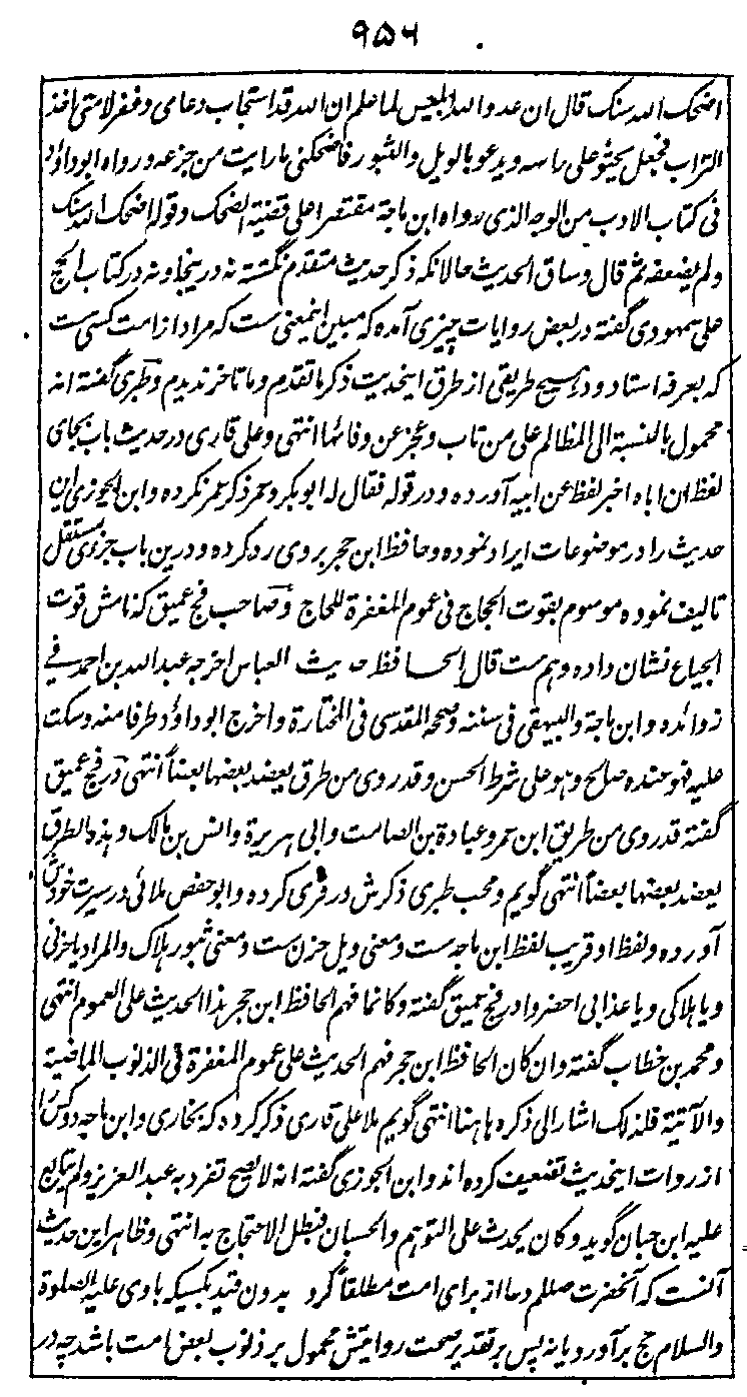 ۹۵۶
اضحک الله سنک قال ان عدو الله ابلیس لما علم ان الله قد استجاب دعامی و غفر لامتی اخذ
التراب فجعل یحثو علی راسه و یدعو بالویل والثبور فاضحکنی ما رایت من جزعه و رواه ابوداؤد
فی کتاب الادب من الوجه الذی رواه ابن ماجة مقتصرا علی قضیة الضحک و قوله اضحک الله سنک
ولم یضعفه ثم قال و ساق الحدیث حالانکه ذکر حدیث متقدم نگشته نه درینجا و نه در کتاب الحج
علی سمهودی گفته در بعض روایات چیزی آمده که مبین اینمعنی ست که مراد از امت کسی ست
که بعرفه استاد و در هیچ طریقی از طرق اینحدیث ذکر ما تقدم و ما تاخر ندیدم و طبری گفته انه
محمول بالنسبة الی المظالم علی من تاب و عجز عن وفائها انتهی و علی قاری در حدیث باب بجای
لفظ ان اباه اخبر لفظ عن ابیه آورده و در قوله فقال له ابوبکر و عمر ذکر عمر نکرده و ابن الجوزی این
حدیث را در موضوعات ایراد نموده و حافظ ابن حجر بروی رد کرده و درین باب جزوی مستقل
تالیف نموده موسوم بقوت الحجاج فی عموم المغفرة للحاج و صاحب فج عمیق که نامش قوت
الجیاع نشان داده و هم ست قال الحافظ حدیث العباس اخرجه عبد الله بن احمد فی
زوائده و ابن ماجة والبیهقی فی سننه و صححه المقدسی فی المختارة و اخرج ابوداؤد طرفا منه و سکت
علیه فهو عنده صالح و هو علی شرط الحسن و قد روی من طرق یعضد بعضها بعضاً انتهی در فج عمیق
گفته قد روی من طریق ابن عمر و عبادة بن الصامت و ابی هریرة و انس بن مالک و هذه الطرق
یعضد بعضها بعضاً انتهی گویم و محب طبری ذکرش در قری کرده و ابو حفص ملائی در سیرت خودش
آورده و لفظ او قریب لفظ ابن ماجه ست و معنی ویل حزن ست و معنی ثبور هلاک والمراد یا حزنی
و یا هلاکی و یا عذابی احضروا در فج عمیق گفته و کانما فهم الحافظ ابن حجر هذا الحدیث علی العموم انتهی
و محمد بن خطاب گفته و ان کان الحافظ ابن حجر فهم الحدیث علی عموم المغفرة فی الذنوب الماضیة
والآتیة فلذلک اشار الی ذکره هاهنا انتهی گویم ملا علی قاری ذکر کرده که بخاری و ابن ماجه دو کس را
از روات اینحدیث تضعیف کرده اند و ابن الجوزی گفته انه لا یصح تفرد به عبد العزیز و لم یتابع
علیه ابن حبان گوید و کان یحدث علی التوهم والحسبان فبطل الاحتجاج به انتهی و ظاهر این حدیث
آنست که آنحضرت صللم دعا از برای امت مطلقاً کرد بدون قید بکسیکه با وی علیه الصلوة
والسلام حج برآورد یا نه پس بر تقدیر صحت روایتش محمول بر ذنوب بعض امت باشد چه در